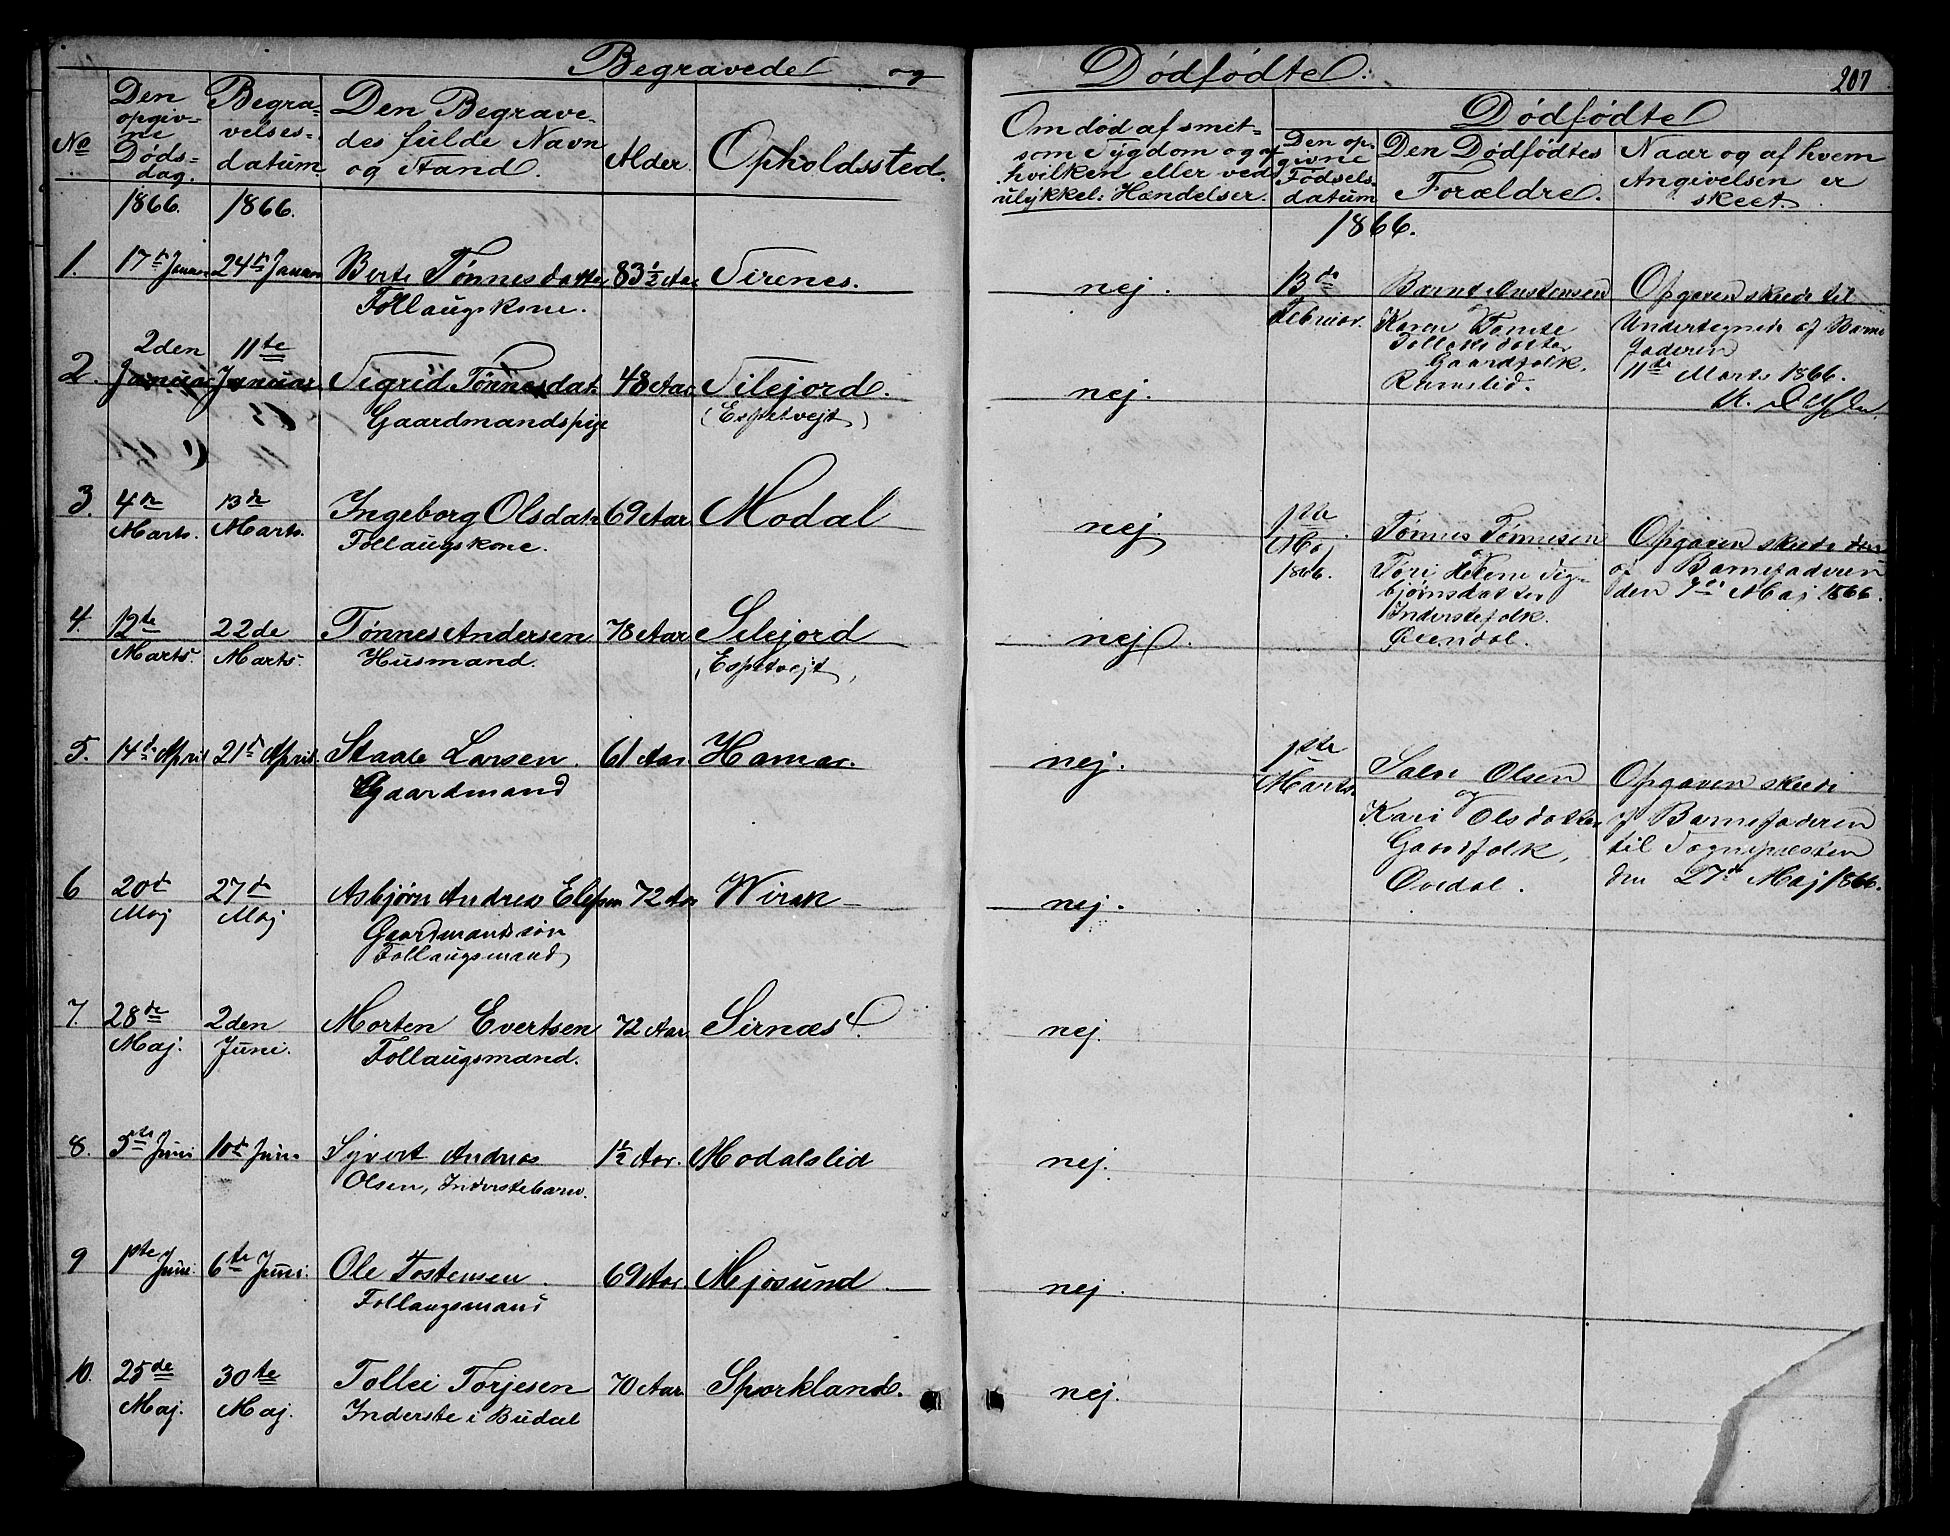 Begravede og Dødfødte.
207
No
Den opgivne Dødsdag.
Begravelsesdatum
Den Begravedes fulde Navn og Stand.
Alder.
Opholdssted.
Om død af smitsom Sygdom og af hvilken eller ved ulykkel: Hændelser.
Dødfødte
Den opgivne Fødselsdatum
Den Dødfødtes Forældre.
Naar og af hvem Angivelsen er skeet.
1866. 1866.
1866.
1. 17de Januar 24de Januar Berte Tønnesdatter 83 1/2 Aar Sirenes. nej.
Follaugskone.
2. 2den Januar 11te Januar Sigrid Tønnesdat. 48 Aar Silejord. nej.
Gaardmandspige (Espetvejt)
3. 4de Marts. 13de Marts. Ingeborg Olsdatr 69 Aar Modal nej
Follaugskone.
4. 12te Marts. 22de Marts. Tønnes Andersen 78 Aar Silejord nej.
Husmand. (Espetvejt)
5. 14de April 21de April. Staale Larsen. 61 Aar Hamar. nej.
Gaardmand
6 20de Maj 27de Maj Asbjørn Andreas 72 Aar nej.
Gaardmandssøn
Follaugsmand
7. 28de Maj. 2den Juni. Morten Evertsen 72 Aar Sirnæs. nej.
Follaugsmand.
8. 5te Juni 10de Juni Syvert Andreas 1 1/2 Aar. Modalslid nej.
Olsen, Inderstebarn.
9 1ste Juni. 6te Juni. Ole Tostensen. 69 Aar. Mjosund. nej.
Follaugsmand
10. 25de Maj. 30te Maj. Tollei Torjesen 70 Aar Sporkland. nej.
Inderste i Budal
13de Februar.
Karen Tomte
Gaardfolk,
Ramslid.
Opgaven skede til
Undertegnede af Barnefaderen
11de Marts 1866.
1ste Maj 1866.
Tønnes Tønnesen
og
Tori Helene Sigbjørnsdatter
Inderstefolk.
Øvendal.
Opgaven skede
af Barnefaderen
den 7de Maj 1866.
1ste Marts.
Salve Olsen
og
Kari Olsdatter
Gaardfolk,
Ovedal.
Opgaven skede
af Barnefaderen
til Sognepræsten
den 27de Maj 1866.